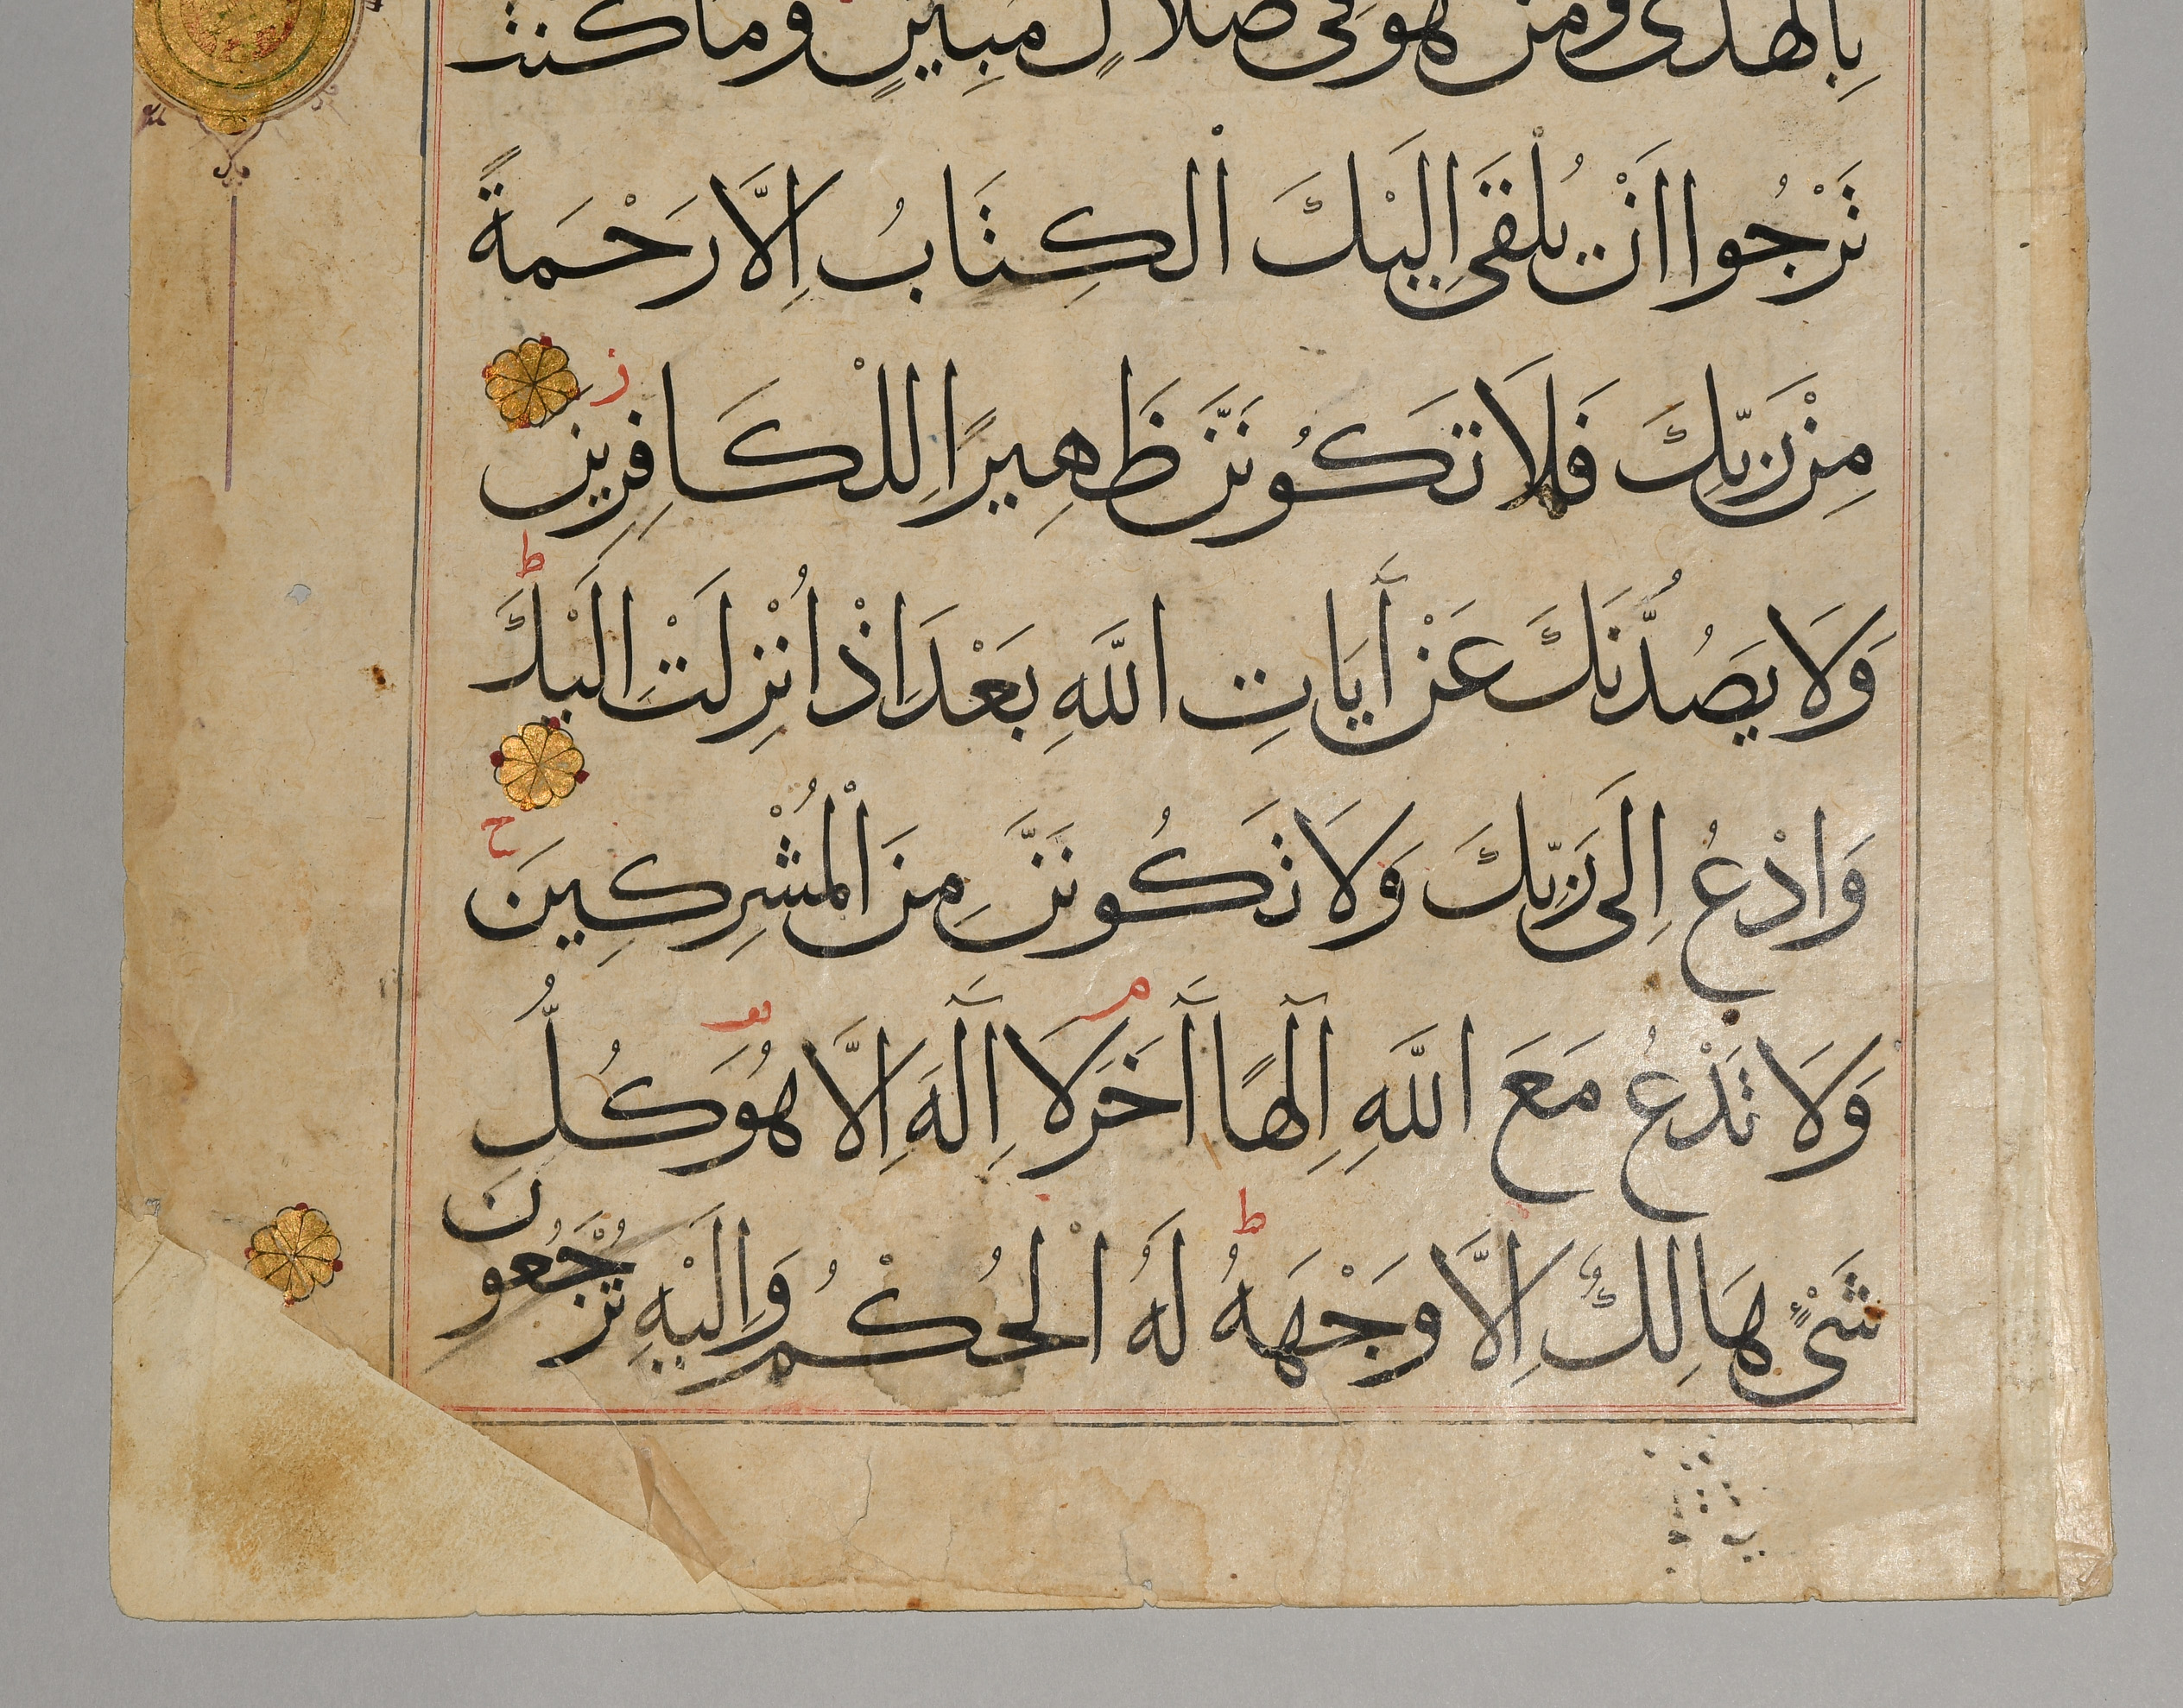 بِالْهُدَى وَمَنْ هُوَ فِي ضَلَالٍ مُبِينٍ وَمَا كُنْتَ
تَرْجُوا اَنْ يُلْقَى اِلَيْكَ الْكِتَابُ اِلَّا رَحْمَةً
مِنْ رَبِّكَ فَلَا تَكُونَنَّ ظَهِيرًا لِلْكَافِرِينَ ز
وَلَا يَصُدُّنَّكَ عَنْ اٰيَاتِ اللَّهِ بَعْدَ اِذْ اُنْزِلَتْ اِلَيْكَ ط
وَادْعُ اِلَى رَبِّكَ وَلَا تَكُونَنَّ مِنَ الْمُشْرِكِينَ ح
وَلَا تَدْعُ مَعَ اللَّهِ اِلٰهًا اٰخَرَ م لَا اِلٰهَ اِلَّا هُوَ كُلُّ
شَيْءٍ هَالِكٌ اِلَّا وَجْهَهُ ط لَهُ الْحُكْمُ وَاِلَيْهِ تُرْجَعُونَ